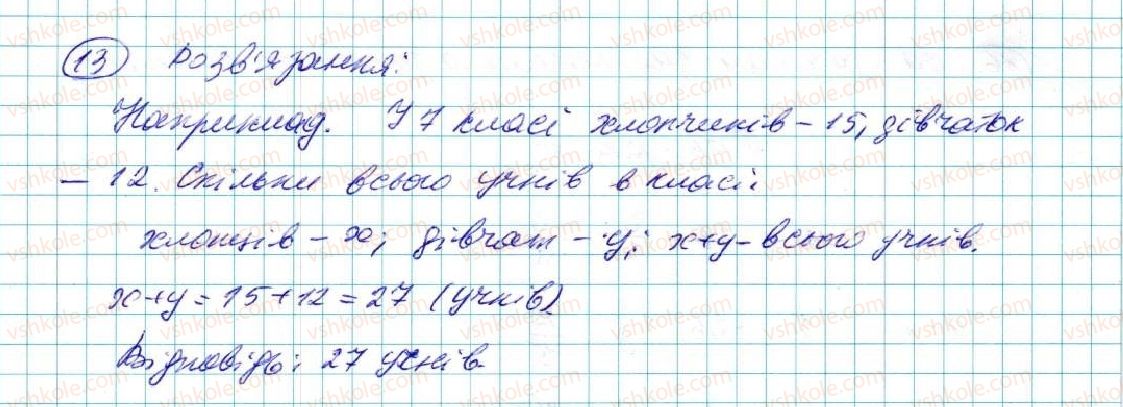 13 Розв'язання:
Наприклад. У 7 класі хлопчиків – 15, дівчаток
– 12. Скільки всього учнів в класі.
хлопців – x; дівчат – y; x+y – всього учнів.
x+y = 15+12 = 27 (учнів)
Відповідь: 27 учнів.
vshkole.com